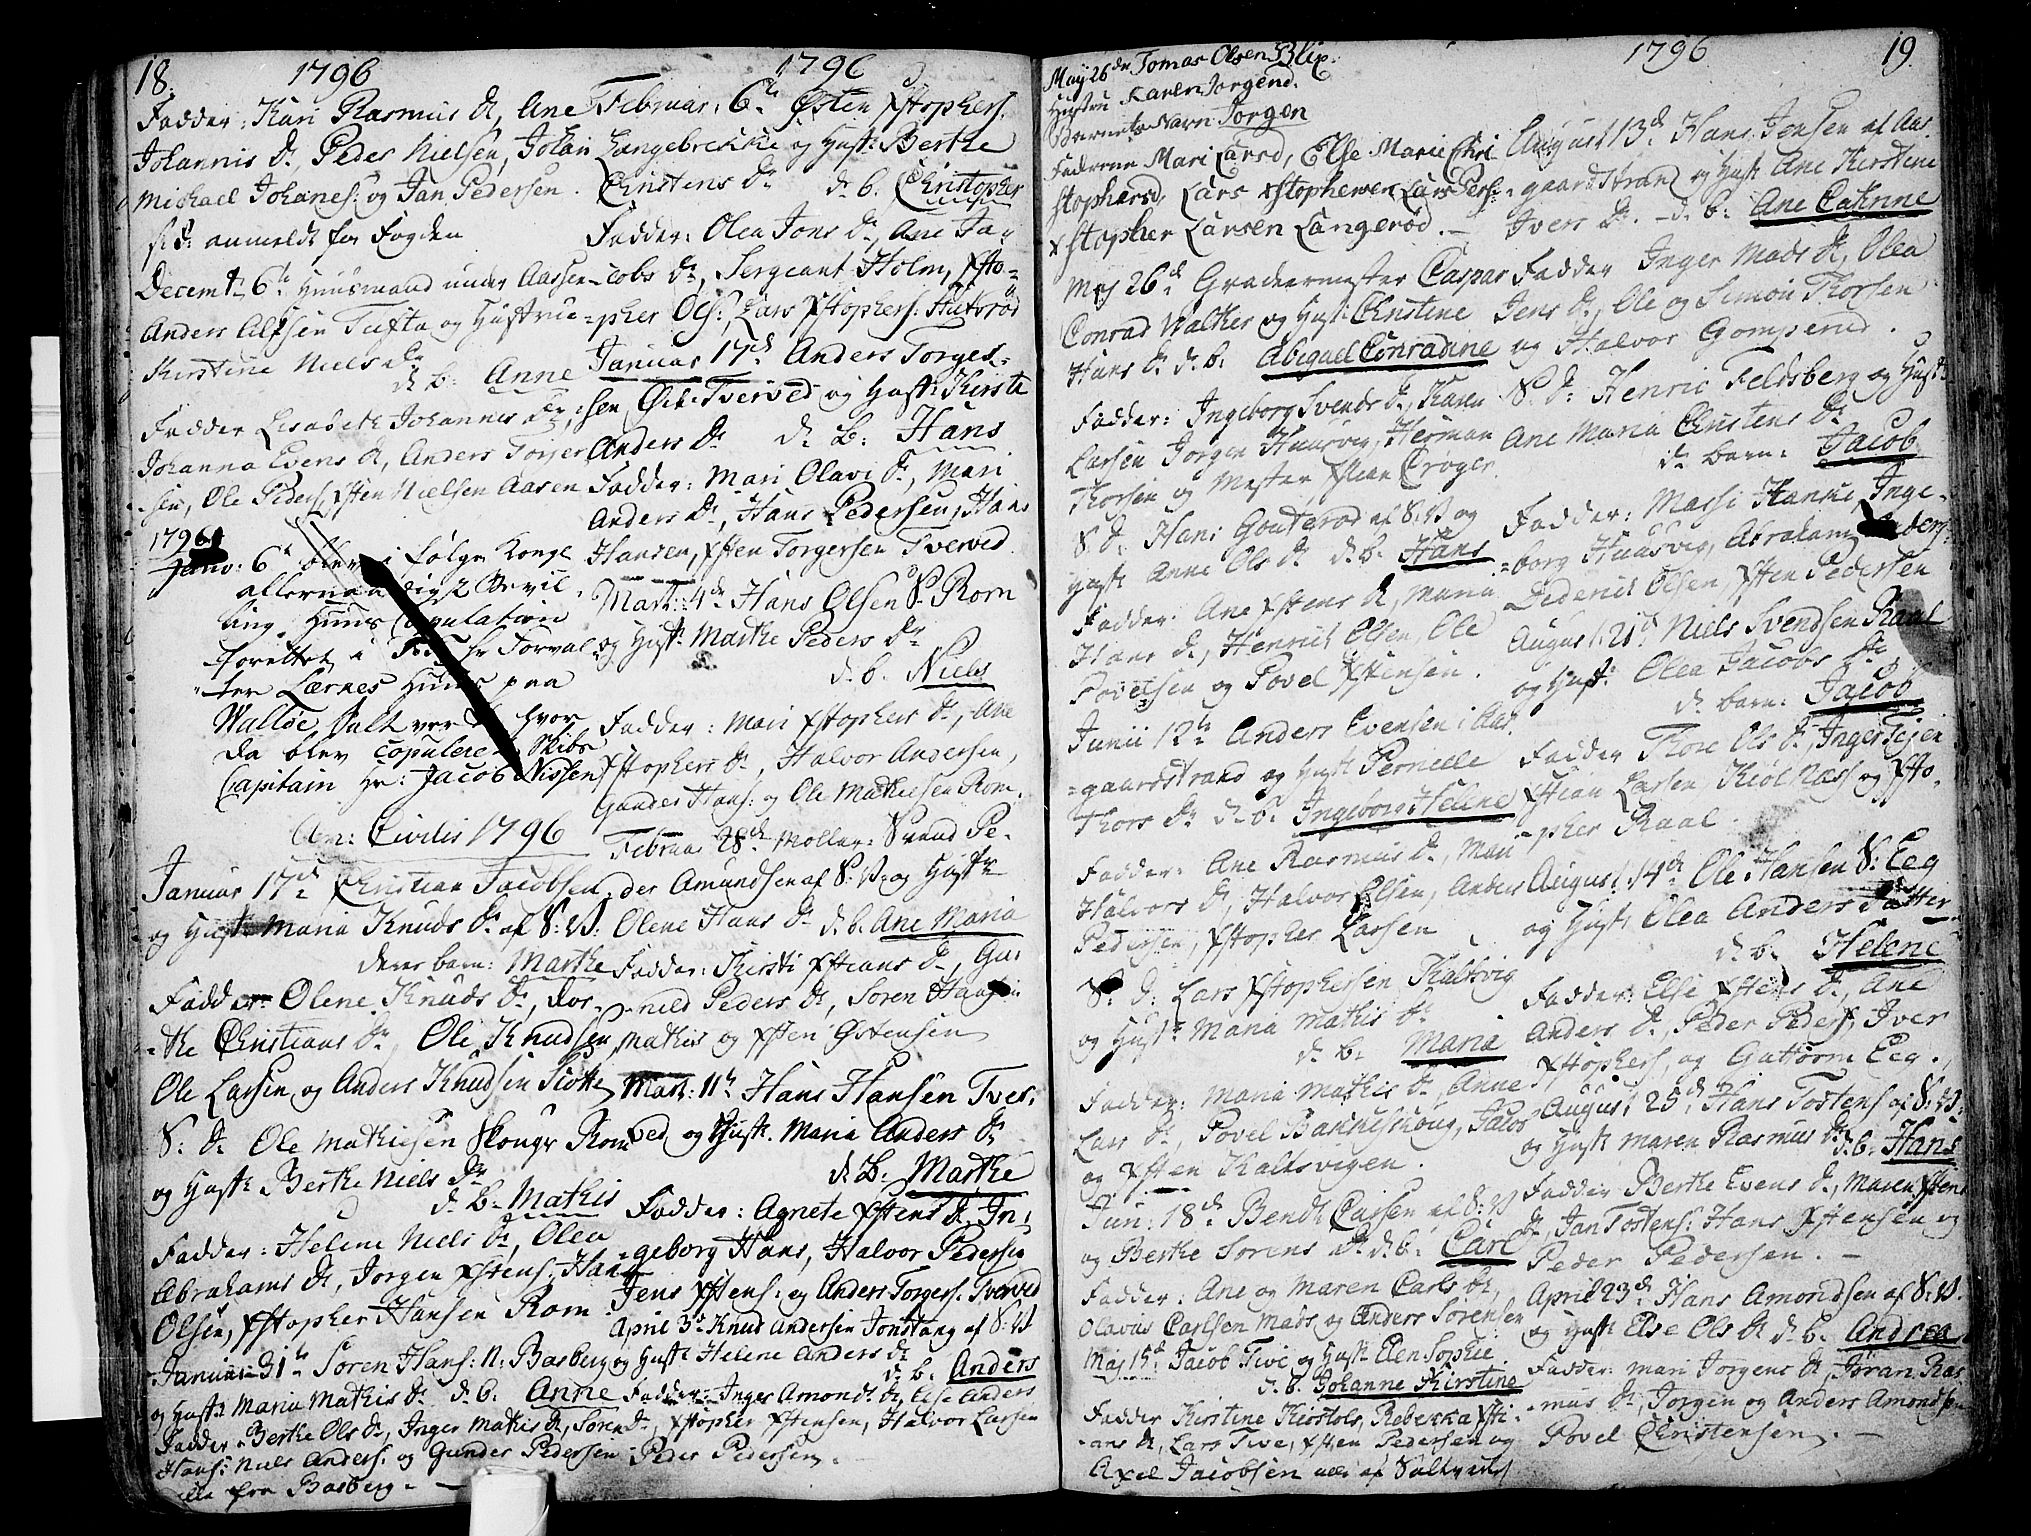 18.
1796
Fadder: Kari Rasmus dr, Ane
Johannis dr, Peder Nielsen, Johan
Michael Johanes: og Jan Pedersen.
anmeldt for Fogden
Decembr 6te Huusmand under Aasen
Anders Tufta og Hustrue
Kirstine Niels dr
d. b: Anne
Fadder Lisabeth Johannis dr,
Johanna Evens dr, Anders Torjer
sen, Ole Peders, Xsten Nielsen Aasen
1796
6te blev i følge Konge
allernaadigste Bevil
ling, Huus Copulation
forettet i Hr Forval
ter Lærnes Huus paa
Walløe Salt verk hvor
da blev copuleret Skibs
Capitain Hr: Jacob Nissen
An: Civilis 1796
Januar 17de Christian Jacobsen
og Hustr Maria Knuds dr af S: V:
deres barn: Marthe
Fadder: Olene Knuds dr, Dor-
the Christians dr, Ole Knudsen,
Ole Larsen, og Anders Knudsen
S: d: Ole Mathiesen Skougr Rom
og Hustr Berthe Niels dr
d. b: Mathis
Fadder: Helene Niels dr, Olea
Abrahams dr, Jorgen Xstens: Hans
Olsen, Xstopher Hansen Rom.
Januari 31te Soren Hans: N: Basberg
og Hustr Maria Mathis dr d. b. Anne
Fadder Berthe Ols dr, Inger Mathis dr, Soren
Hans: Niels Anders: og Gunder Pedersen
alle fra Basberg.
1796
Februar: 6te Østen Xstophers.
Langebrekke og Hustr: Berthe
Christens dr d. b: Christopher
Fadder: Olea Jons dr, Ane Ja-
cobs dr, Sergeant Holm, Xsto-
pher Ols:, Lars Xstophers: Hutsrød
Januar 17de Anders Torges-
sen Tverved og Hustr: Kirste
Anders dr d. b: Hans
Fadder: Mari Olavi dr, Mari
Anders dr, Hans Pedersen, Hans
Hansen, Xsten Torgersen Tverved
Mart: 4de Hans Olsen S: Rom
og Hustr Marthe Peders dr
d. b. Niels
Fadder: Mari Xstophers dr, Ane
Xstophers dr, Halvor Andersen,
Gunder Hans: og Ole Mathiesen Rom.
Februar 28de Møller: Svend Pe-
der Amundsen af S: V: og Hustr
Olene Hans dr d. b. Ane Maria
Fadder: Kirsti Xstians dr, Gu-
nild Peders dr, Soren Hansen
Mathis og Xsten Østensen
Mart: 11te Hans Hansen Tver-
ved og Hustr Maria Anders dr
d. b: Marthe
Fadder: Agnete Xstens dr, In-
geborg Hans, Halvor Pedersen
Jens Xstens: og Anders Torgers: Tverved
April 3de Knud Andersen Jonstang af S: V
og Hustr Helene Anders dr
d. b. Anders
Fadder: Inger Amond dr, Else Anders
dr, Xstopher Xstensen, Halvor Larsen
Peder Pedersen.
May 26de Tomas Olsen Blix.
Hustru Karen Jorgend.
Barnets Navn Jorgen
Fadderne Mari Larsd, Else Marie Chri
stophersd, Lars Xstophersen Lars Pers:
Xstopher Larsen Langerød.
Maj 26de Gradeermester Caspar
Conrad Walker og Hustr Christine
Hans dr d. b. Abigael Conradine
Fadder: Ingeborg Svends dr, Karen
Larsen Jorgen Haasvig, Herman
Thorsen og Mester Xstian Crøger.
S: d: Hans Gouterød af S: V og
Hustr Anne Ols dr d. b. Hans
Fadder: Ane Xstens dr, Maria
Hans dr, Henrich Olsen, Ole
Povelsen og Povel Xstensen.
Junii 12te Anders Evensen i Aas-
gaardstrand og Hustr Pernelle
Thors dr d. b. Ingeborg Helene
Fadder: Ane Rasmus dr, Mari
Halvors dr, Halvor Elsen, Anders
Pedersen, Xstopher Larsen
S: d: Lars Xstophersen Kaltsvig
og Hustr Maria Mathis dr
d. b. Maria
Fadder: Maria Mathis dr, Anne
Lars dr, Povel Bakkeskoug, Jacob
og Xsten Kaltsvigen.
Jun: 18de Bendt Carlsen af S: V
og Berthe Sorens dr d. b. Carl
Fadder: Ane og Maren Carls dr,
Olavus Carlsen Mads og Anders Sorensen
Maj 15de Jacob Tive og Hustr Elen Sophie
d. b. Johanne Kirstine
Fadder Kirstine Kiostols, Rebekka Xsti-
ans dr, Lars Tive, Xsten Pedersen og
Axel Jacobsen alle af Saltverket
1796
19
August 13de Hans Jensen af Aas-
gaardstrand og Hustr Ane Kirstine
Ivers dr. d. b: Ane Catrine
Fadder Inger Mads dr, Olea
Jens dr, Ole og Simon Thorsen
og Halvor Gomperud.
S: d: Henric Feldsberg og Hustr
Ane Maria Christens dr
d. barn: Jacob
Fadder: Massi Hanne, Inge-
borg Haasvig, Abraham Anders:
Diderich Olsen, Xsten Pedersen
August 21de Niels Svendsen Raal
og Hustr Olea Jacobs dr
d. barn: Jacob
Fadder Thore Ols dr, Inger Tejen
Xstian Larsen, Kiøl Næss og Xsto-
pher Raal.
August 14de Ole Hansen S: Eeg
og Hustr Olea Anders datter
d. b. Helene
Fadder: Else Xstens dr, Ane
Anders dr, Peder Peders, Iver
Xstophers, og Guttorm Eeg.
August 25de, Hans Tostens af S: V:
og Hustr Maren Rasmus dr d. b. Hans
Fadder Berthe Evens dr, Maren Xstens
dr, Jan Tostens: Hans Xstensen og
Peder Pedersen.
April 23de Hans Amondsen af S: V.
og Hustr Else Ols dr d. b. Andrea
Fadder: Mari Jorgens dr, Joran Ras
mus dr, Jorgen og Anders Amondsen
Povel Christensen.